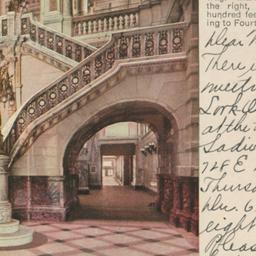 the right,
hundred fee
ing to Fourt
Dear
There i
meeti
Look
at the
Sadi
728 E
Thursd
Nov. 6
eight
Pleas